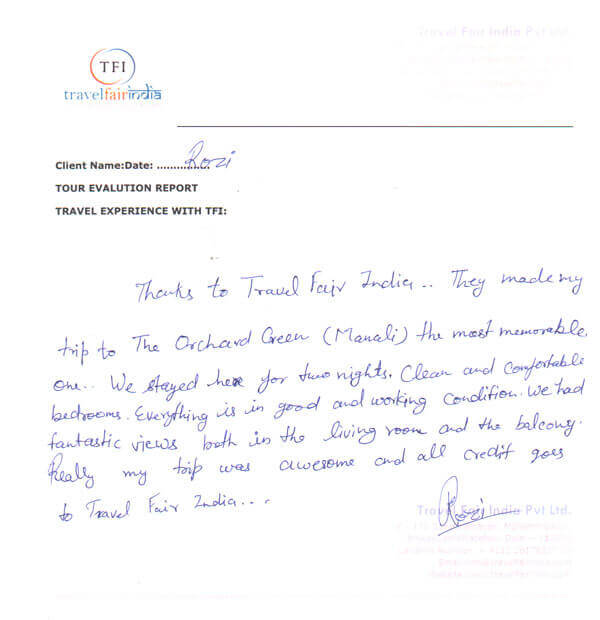 Travel Fair India Pvt Ltd.
TFI
travelfairindia
Client Name:Date: ................ Rozi
TOUR EVALUTION REPORT
TRAVEL EXPERIENCE WITH TFI:
Thanks to Travel Fair India.. They made my
trip to The Orchard Green (Manali) the most memorable
one.. We stayed here for two nights. Clean and Comfortable
bedrooms. Everything is in good and working Condition. We had
fantastic views both in the living room and the balcony.
Really my trip was awesome and all credit goes
to Travel Fair India...
Rozi
Travel Fair India Pvt Ltd.